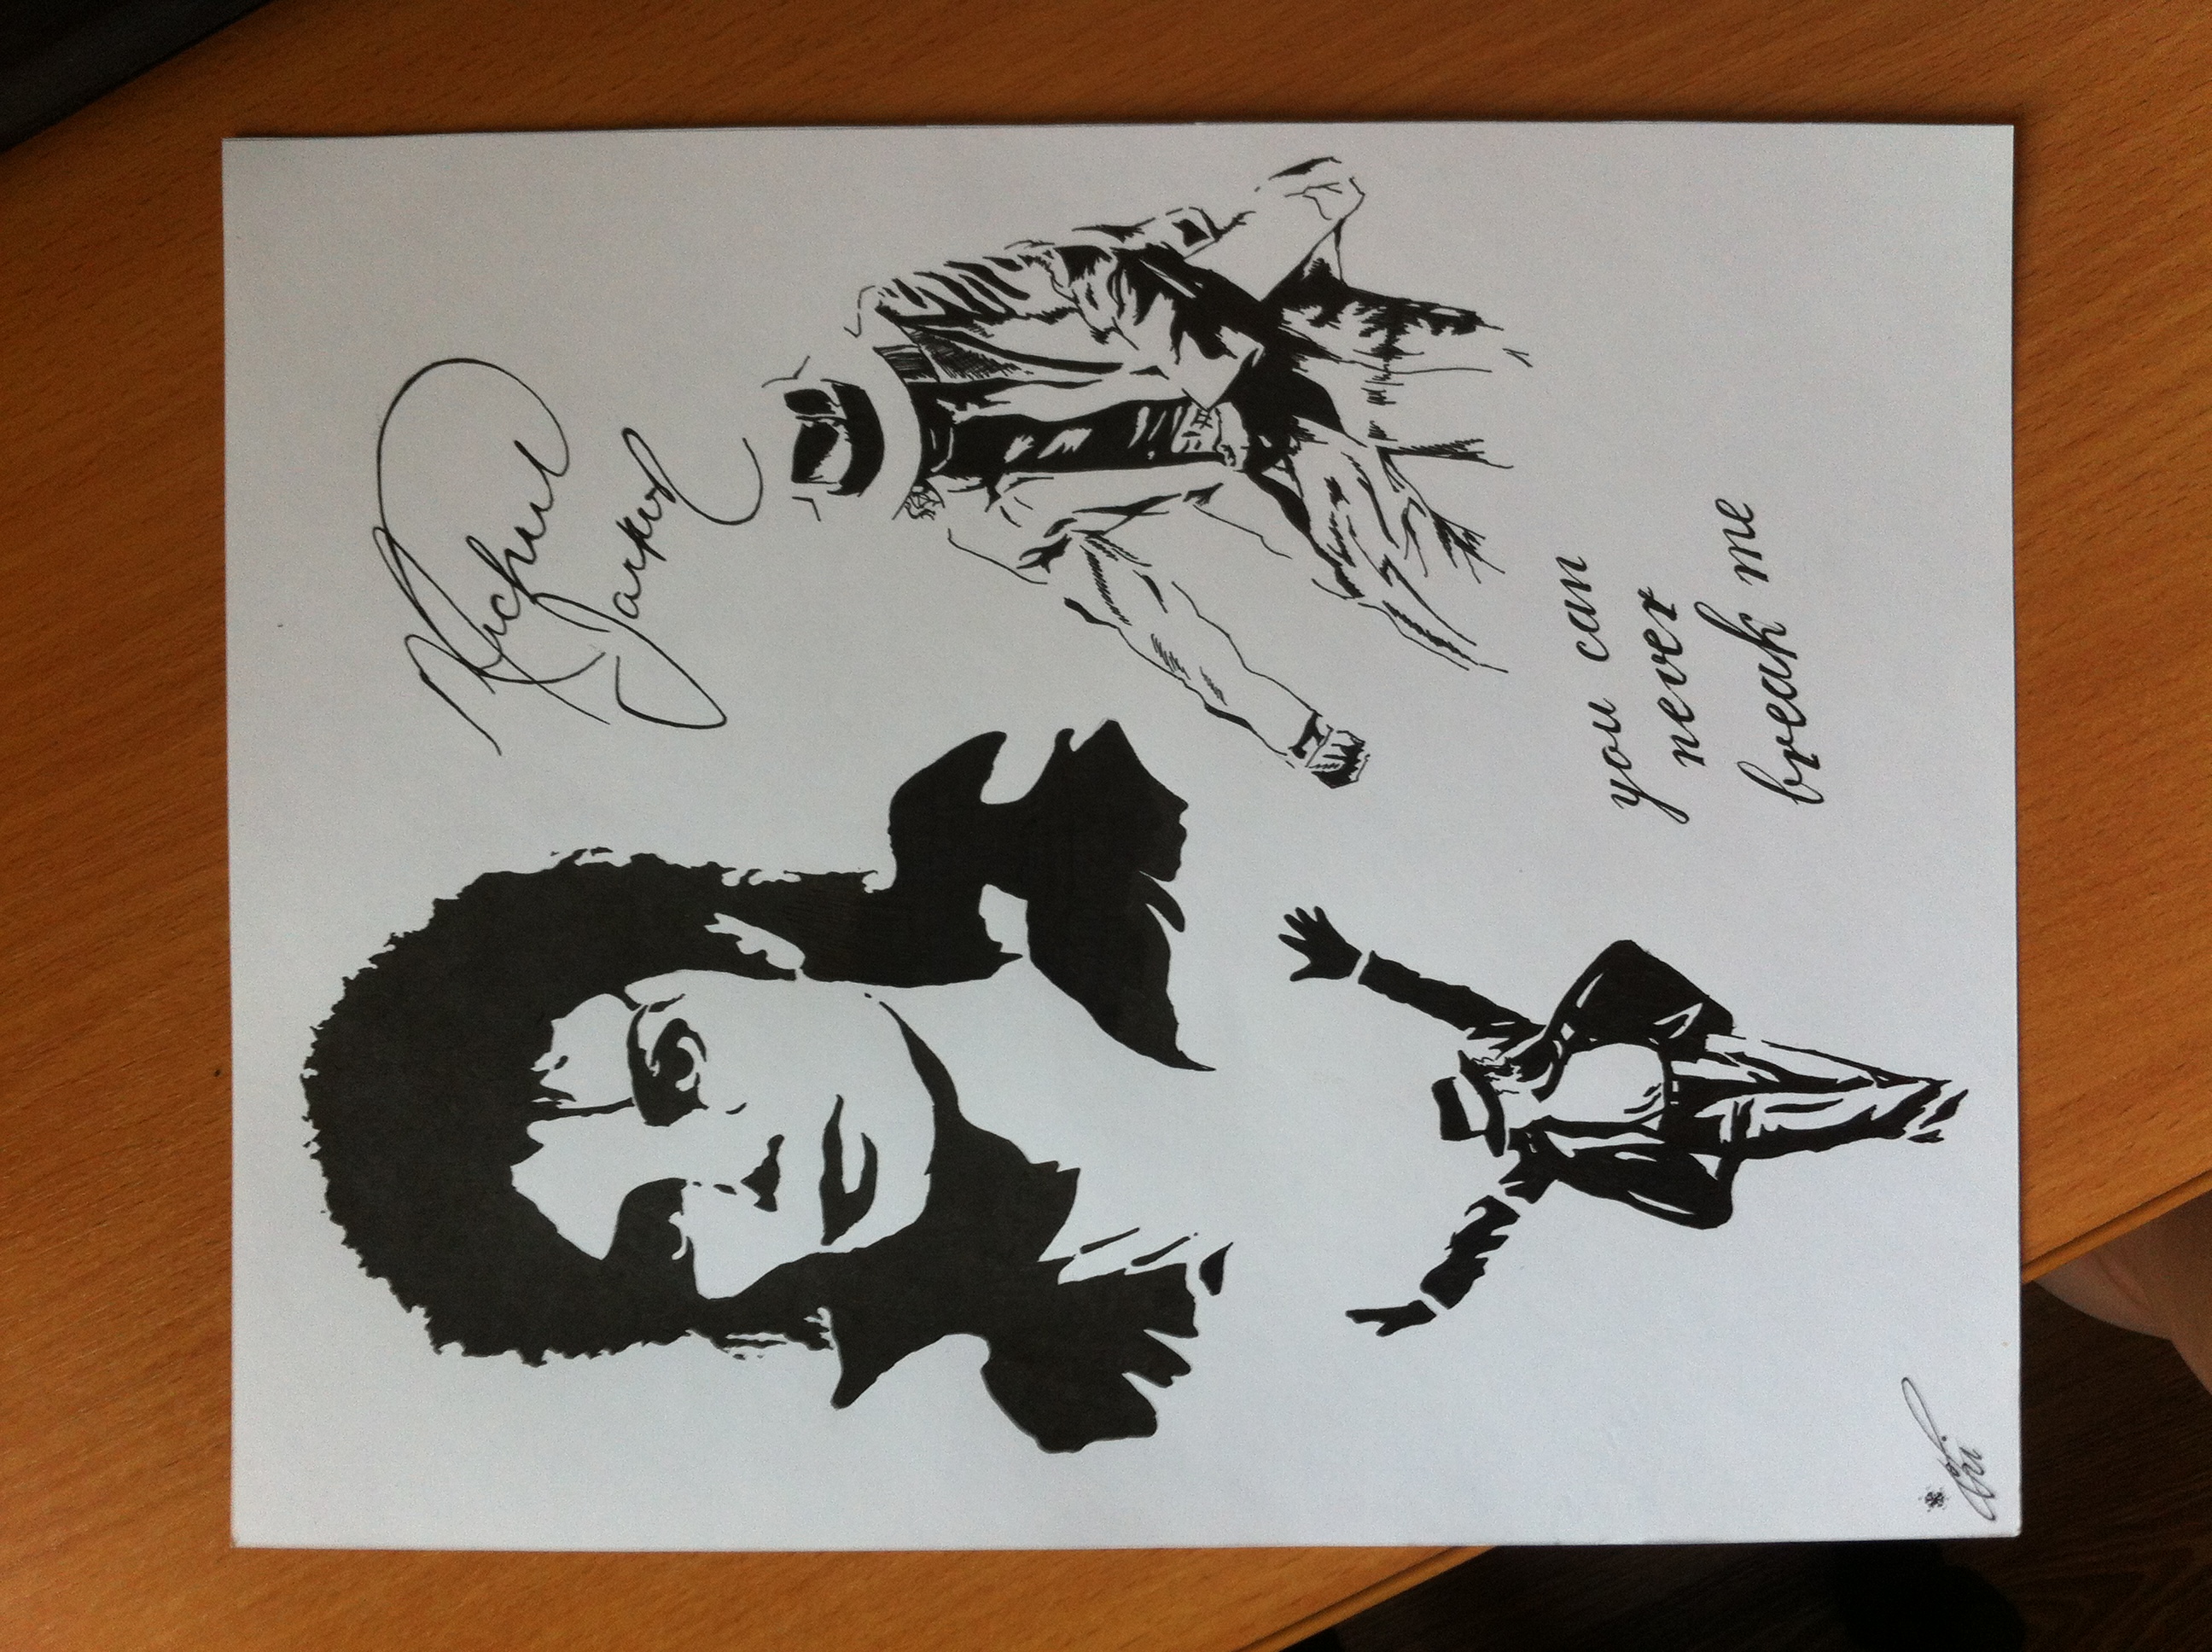 Michael
Jackson
you can
never
break me